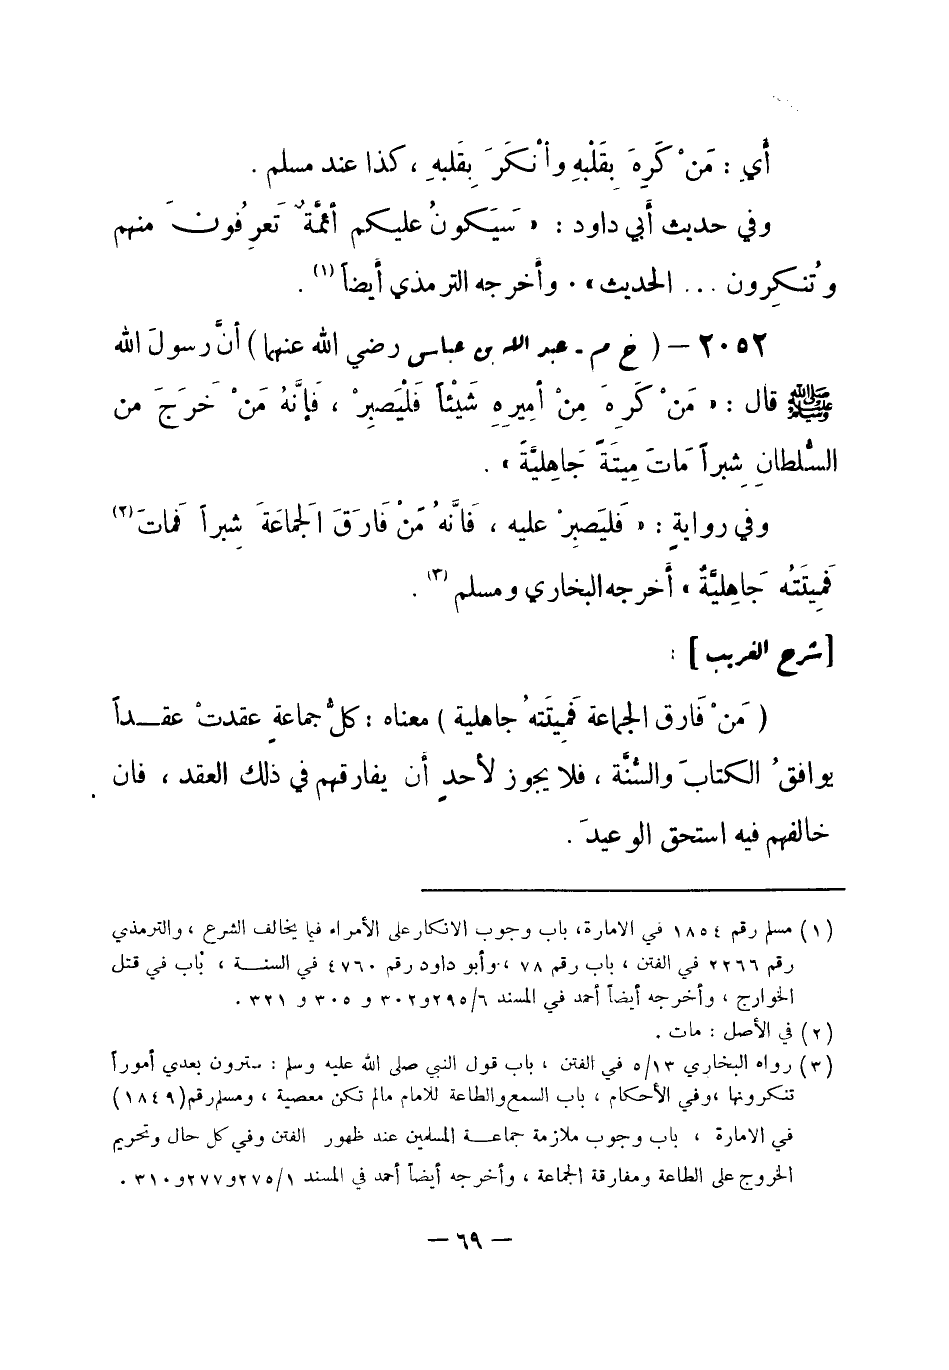 أي : مَنْ كَرِهَ بِقَلْبِهِ وأنْكَرَ بِقَلبهِ ، كذا عند مسلم .
وفي حديث أبي داود : « سَيَكونُ عليكم أئمَّةٌ تَعرِفُونَ منهم
وتُنكِرون ... الحديث » . وأخرجه الترمذي أيضاً (١) .
٢٠٥٢ – ( خ م - عبد الله بن عباس رضي الله عنهما ) أنَّ رسولَ الله
ﷺ قال : « مَنْ كَرِهَ مِنْ أميرِهِ شَيْئاً فَلْيَصبِرْ ، فَإنَّهُ مَنْ خَرَجَ من
السُّلطانِ شِبراً مَاتَ مِيتَةً جَاهِليَّةً » .
وفي روايةٍ : « فَليَصبِرْ عليه ، فَانَّهُ مَنْ فَارَقَ الجَماعَةَ شِبراً فَماتَ (٢)
فَمِيتَتُه جَاهِليَّةٌ » أخرجه البخاري ومسلم (٣) .
[ شرح الغريب ] :
( مَنْ فَارق الجماعة فَمِيتَتهُ جاهلية ) معناه : كلُّ جماعةٍ عقدتْ عقـداً
يوافقُ الكتابَ والسُّنَّة ، فلا يجوز لأحدٍ أن يفارقهم في ذلك العقد ، فان
خالفهم فيه استحق الوعيدَ .
(١) مسلم رقم ١٨٥٤ في الامارة، باب وجوب الانكار على الأمراء فيما يخالف الشرع ، والترمذي
رقم ٢٢٦٦ في الفتن ، باب رقم ٧٨ ، وأبو داود رقم ٤٧٦٠ في السنـة ، باب في قتل
الخوارج ، وأخرجه أيضاً أحمد في المسند ٦/٢٩٥و٣٠٢ و ٣٠٥ و ٣٢١ .
(٢) في الأصل : مات .
(٣) رواه البخاري ١٣/٥ في الفتن ، باب قول النبي صلى الله عليه وسلم : سترون بعدي أموراً
تنكرونها ، وفي الأحكام ، باب السمع والطاعة للامام مالم تكن معصية ، ومسلم رقم (١٨٤٩)
في الامارة ، باب وجوب ملازمة جماعـة المسلمين عند ظهور الفتن وفي كل حال وتحريم
الخروج على الطاعة ومفارقة الجماعة ، وأخرجه أيضاً أحمد في المسند ١/٢٧٥و٢٧٧و٣١٠ .
– ٦٩ –